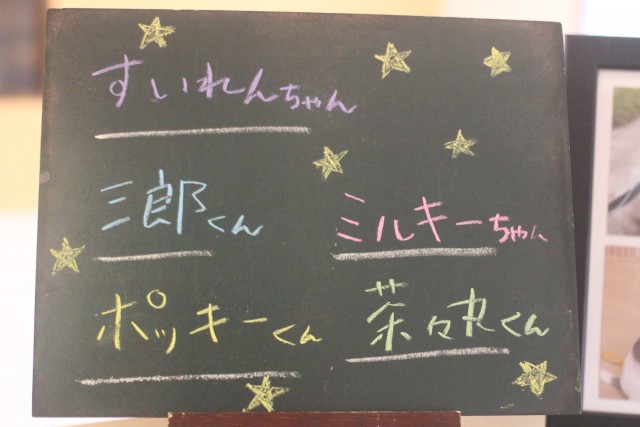 すいれんちゃん
三郎くん
ミルキーちゃん
ポッキーくん
茶々丸くん